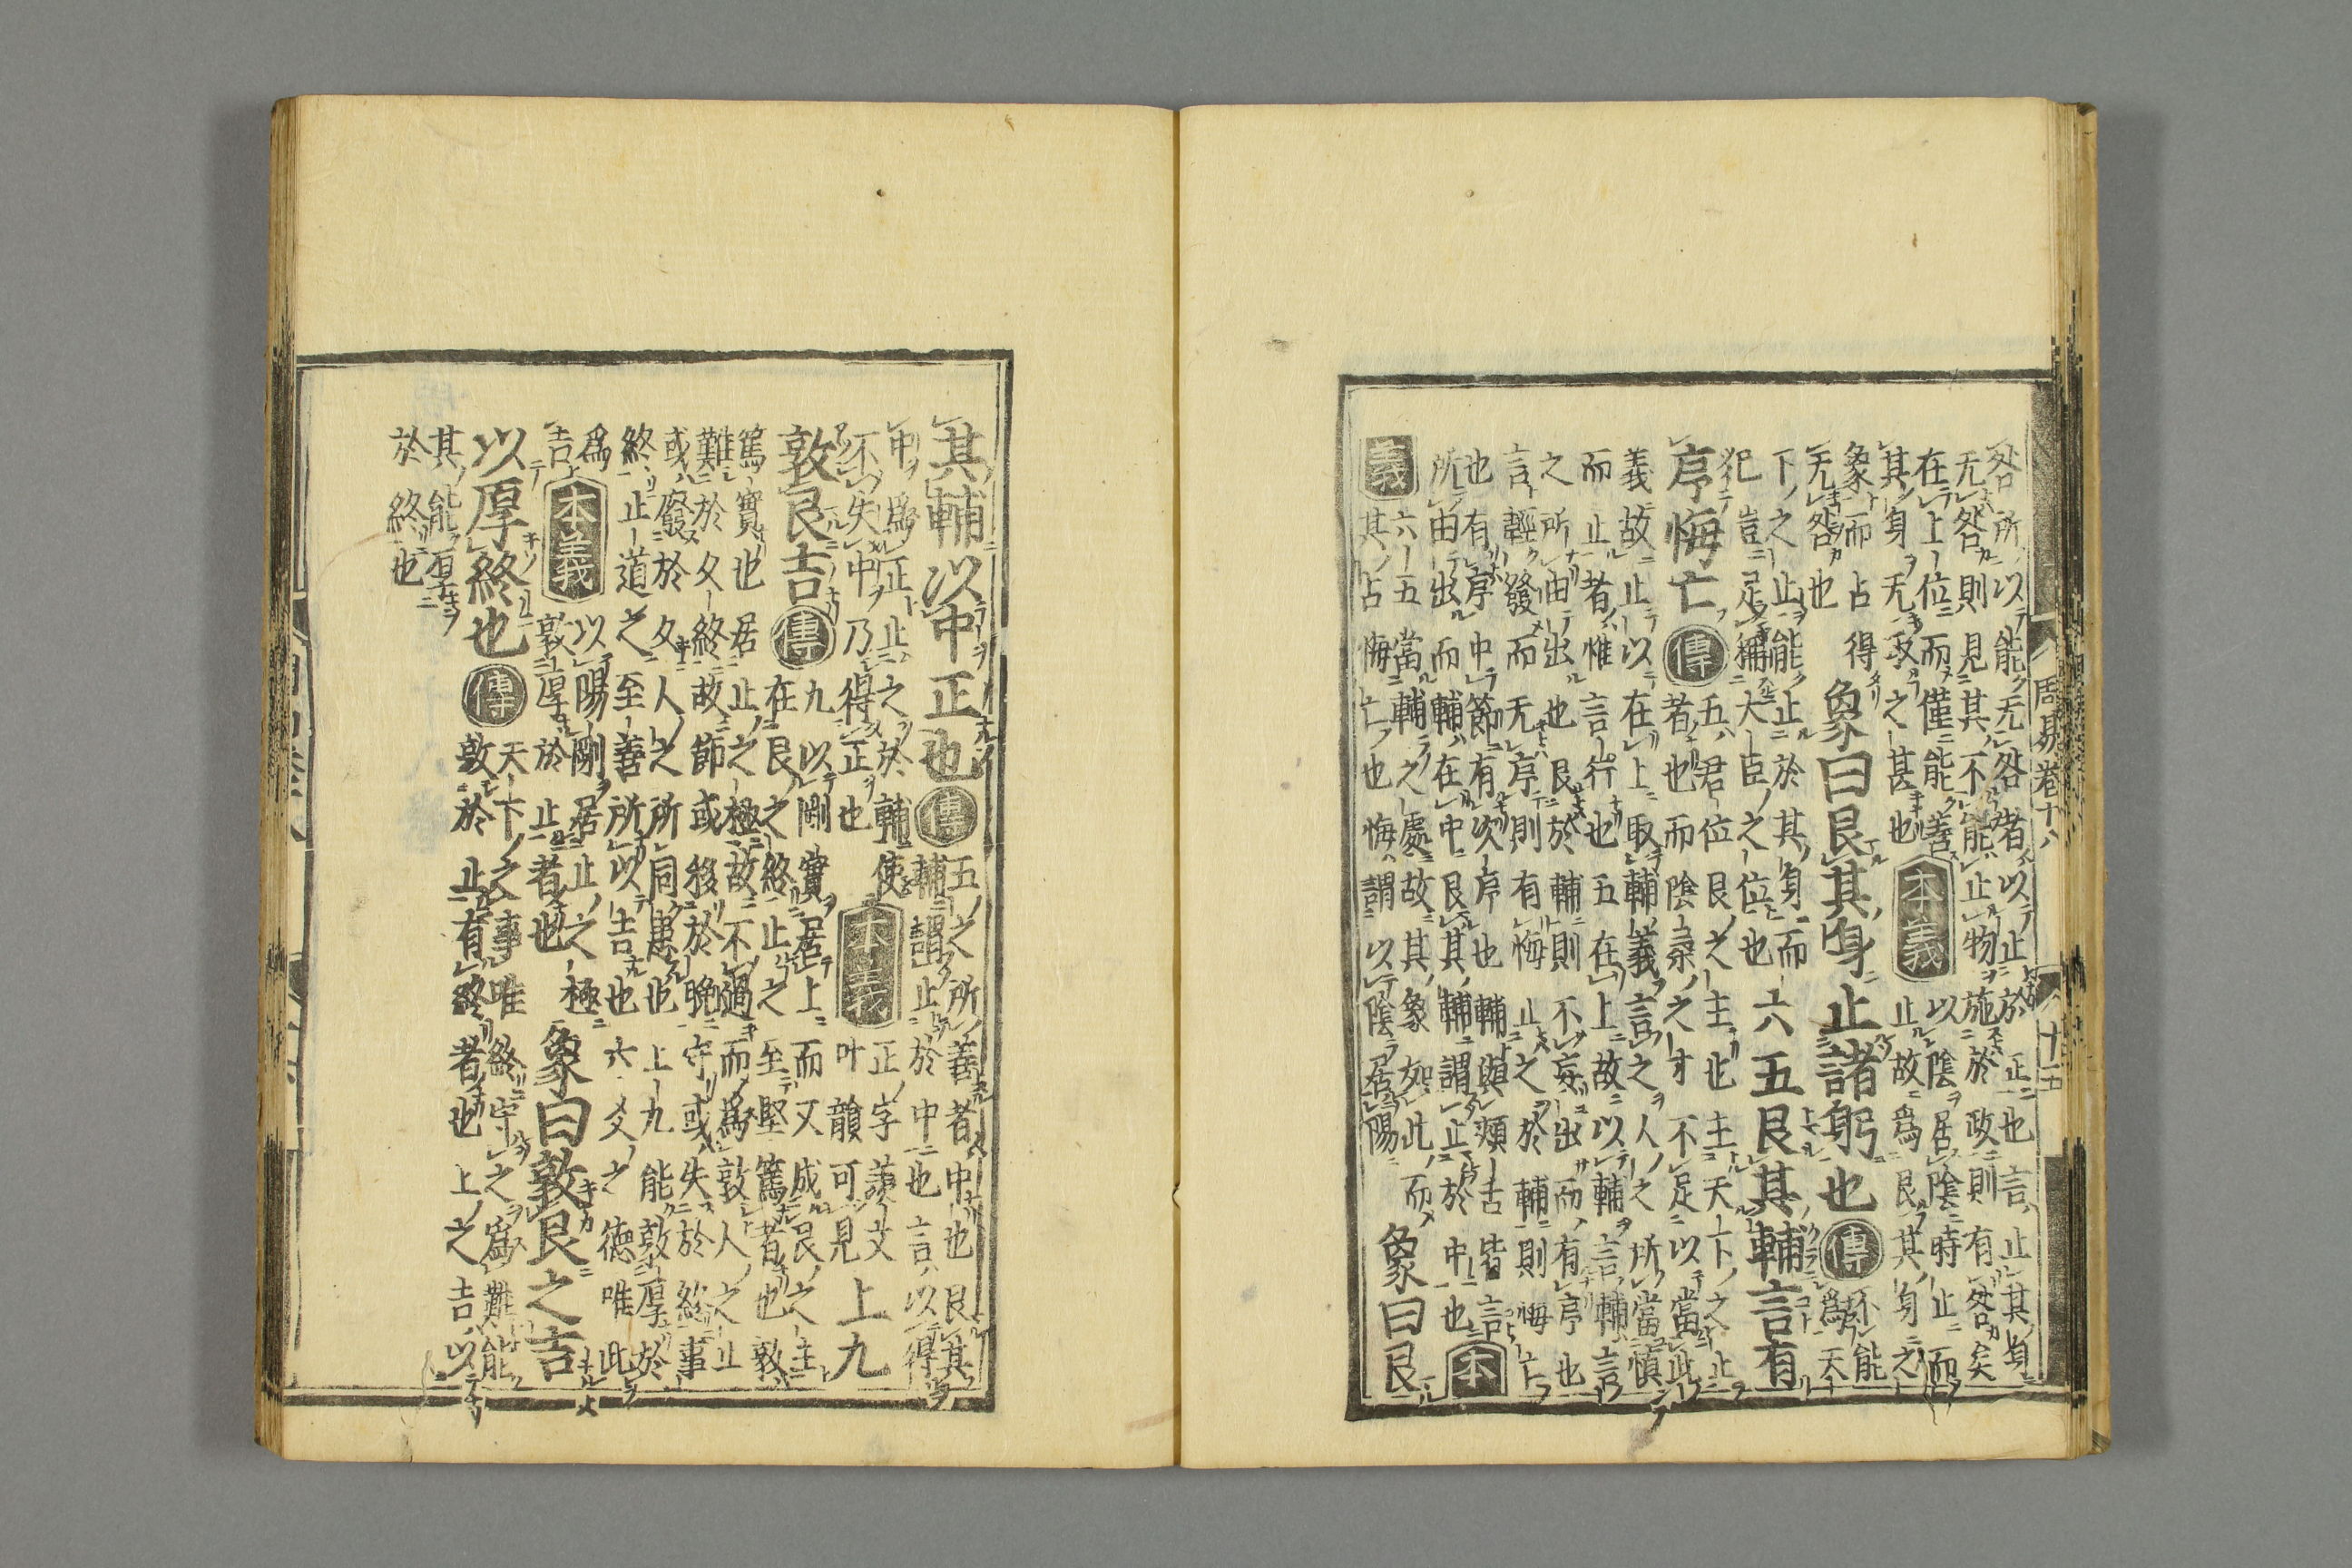 周易卷十八
十五
咎所以能无咎者以止於正也言止其身
无咎則見其不能止物施於政則有咎矣
在上位而僅能善
其身无取之甚也
本義
以陰居陰時止而
止故爲艮其身之
象而占得
无咎也
象曰艮其身止諸躬也
傳
不能
爲天
下之止能止於其身而
犯豈足稱大臣之位也
六五艮其輔言有
序悔亡
傳
五君位艮之主也主天下之止
者也而陰柔之才不足以當此
義故止以在上取輔義言之人之所當愼
而止者惟言行也五在上故以輔言輔言
之所由出也艮於輔則不妄出而有序也
言輕發而无序則有悔止之於輔則悔亡
也有序中節有次序也輔與頰舌皆言
所由出而輔在中艮其輔謂止於中也
本
義
六五當輔之處故其象如此而
其占悔亡也悔謂以陰居陽
象曰艮
其輔以中正也
傳
五之所善者中也艮其
輔謂止於中也言以得
中爲正止之於輔使
不失中乃得正也
本義
正字羨文
叶韻可見
上九
敦艮吉
傳
九以剛實居上而又成艮之主
在艮之終止之至堅篤者也敦
篤實也居止之極故不過而爲敦人之止
難於久終故節或移於晩守或失於終事
或廢於久人之所同患也上九能敦厚於
終止道之至善所以吉也六爻之德唯此
爲
吉
本義
以陽剛居止之極
敦厚於止者也
象曰敦艮之吉
以厚終也
傳
天下之事唯終守之爲難能
敦於止有終者也上之吉以
其能厚
於終也